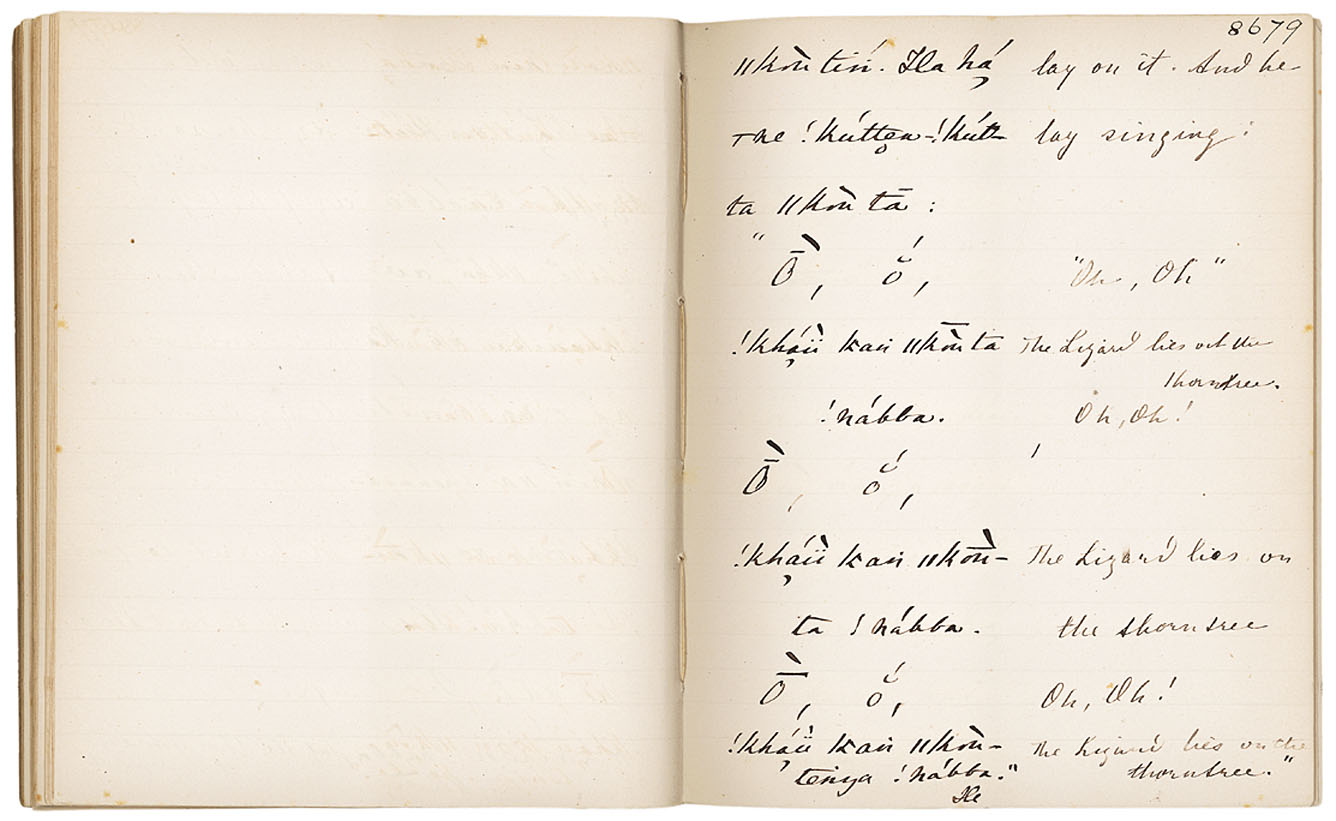 8679
ǁkò̄ù tiń. Ha há̦ lay on it. And he
!kúttẹn-!kút- lay singing:
ta ǁkò̄ù tā :
" Ṑ, ŏ́, "Oh, Oh"
!kháu̦ï kaṅ ǁkò̄ù ta The Lizard lies on the
thorntree.
!nábba. Oh, Oh!
Ṑ, ŏ́,
!kháu̦ï kaṅ ǁkò̄ù- The Lizard lies on
ta !nábba. the thorntree
Ṑ, ŏ́, Oh, Oh!
!kháu̦ï kaṅ ǁkò̄ù- The Lizard lies on the
tenya !nábba." thorntree."
He